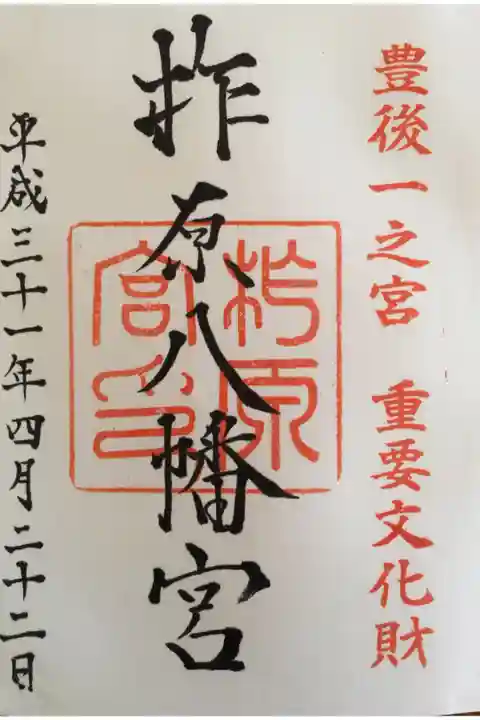 豊後一之宮 重要文化財
柞原八幡宮
柞原宮印
平成三十一年四月二十二日